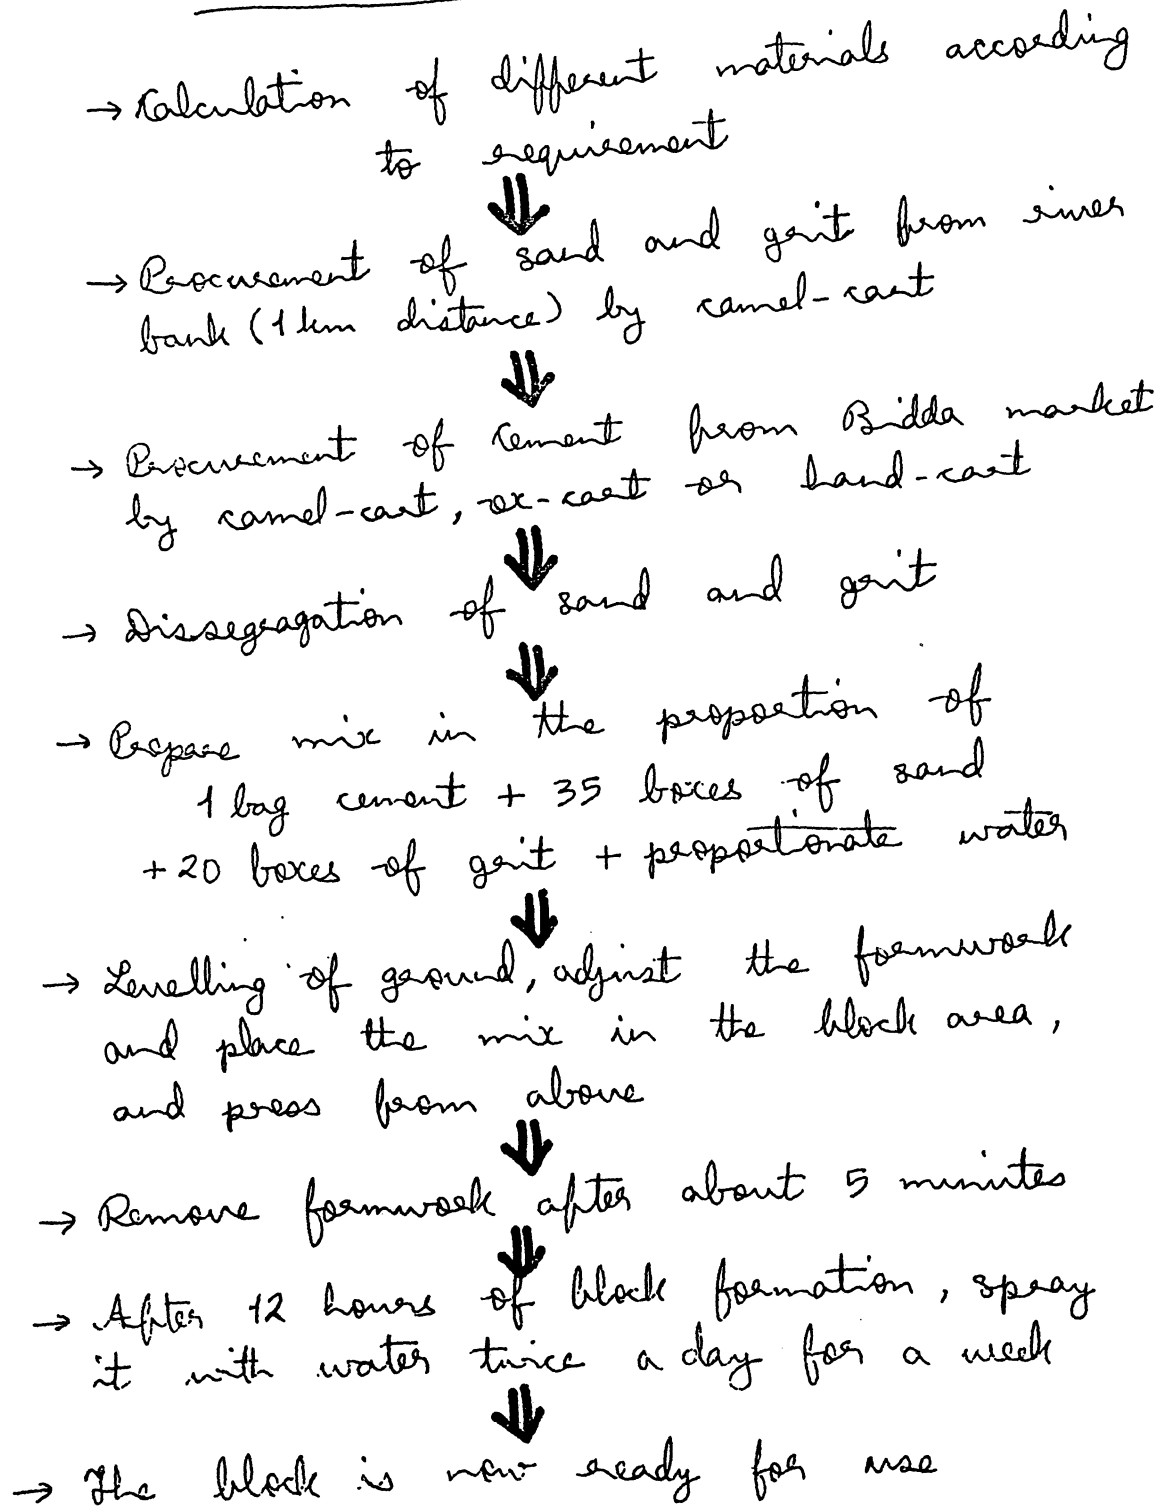 → Calculation of different materials according
to requirement
⇓
→ Procurement of sand and grit from river
bank (1 km distance) by camel-cart
⇓
→ Procurement of cement from Bidda market
by camel-cart, ox-cart or hand-cart
⇓
→ Dissegragation of sand and grit
⇓
→ Prepare mix in the proportion of
1 bag cement + 35 boxes of sand
+ 20 boxes of grit + proportionate water
⇓
→ Levelling of ground, adjust the formwork
and place the mix in the block area,
and press from above
⇓
→ Remove formwork after about 5 minutes
⇓
→ After 12 hours of block formation, spray
it with water twice a day for a week
⇓
→ The block is now ready for use